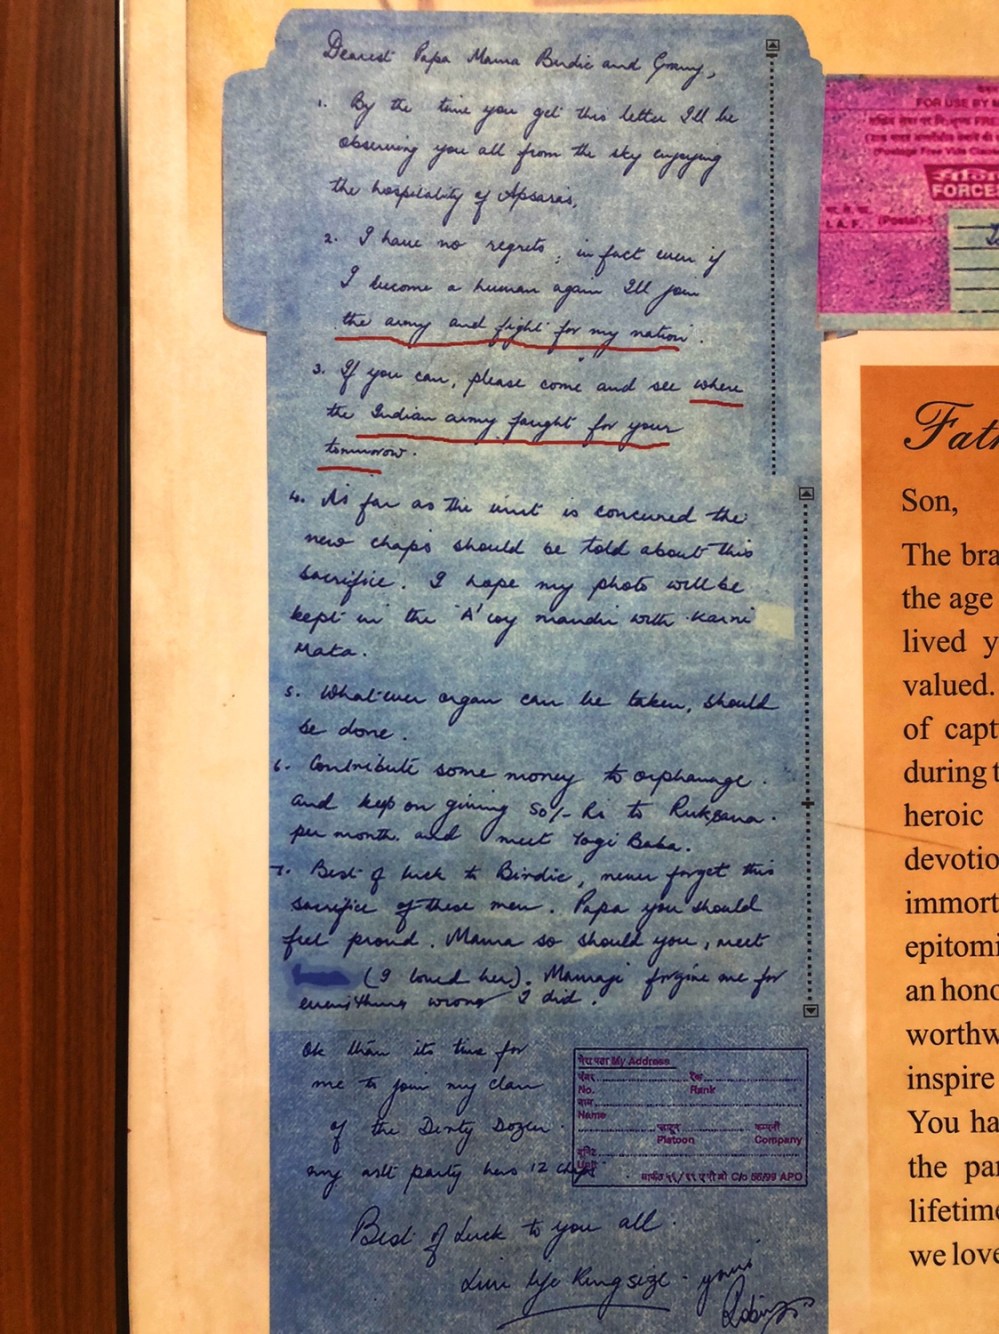 Dearest Papa Mama Birdie and Granny,
1. By the time you get this letter I'll be
observing you all from the sky enjoying
the hospitality of Apsaras.
2. I have no regrets, in fact even if
I become a human again I'll join
the army and fight for my nation.
3. If you can, please come and see where
the Indian army fought for your
tomorrow.
4. As far as the unit is concerned the
new chaps should be told about this
sacrifice. I hope my photo will be
kept in the 'A' coy mandir with Karni
Mata.
5. Whatever organ can be taken, should
be done.
6. Contribute some money to orphanage.
and keep on giving 50/- Rs to Ruksana.
per month. and meet Yogi Baba.
7. Best of luck to Birdie, never forget this
sacrifice of these men. Papa you should
feel proud. Mama so should you, meet
(I loved her). Mamaji forgive me for
everything wrong I did.
Ok then its time for
me to join my clan
of the Dirty Dozen.
my aslt party has 12 chaps
Best of Luck to you all.
Live life King size - yours
Robin
मेरा पता My Address
नंबर रैंक
No. Rank
नाम
Name
प्लाटून कम्पनी
Platoon Company
यूनिट
Unit
मार्फत ५६/९९ ए पी ओ C/o 56/99 APO
FOR USE BY
FORCES
(Postal)
I. A. F.
Son,
The bra
the age
lived y
valued.
of capt
during t
heroic
devotio
immort
epitomi
an hono
worthw
inspire
You ha
the pa
lifetime
we love